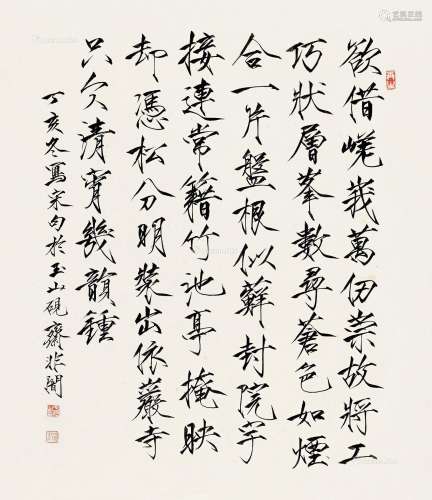 欲借嵯峩萬仞崇故將工
巧狀層峯數尋蒼色如煙
合一片盤根似蘚封院宇
接連常籍竹池亭掩映
却憑松分明裝出依巖寺
只欠清宵幾韻鍾
丁亥冬寫宋句於玉山硯齋非闇